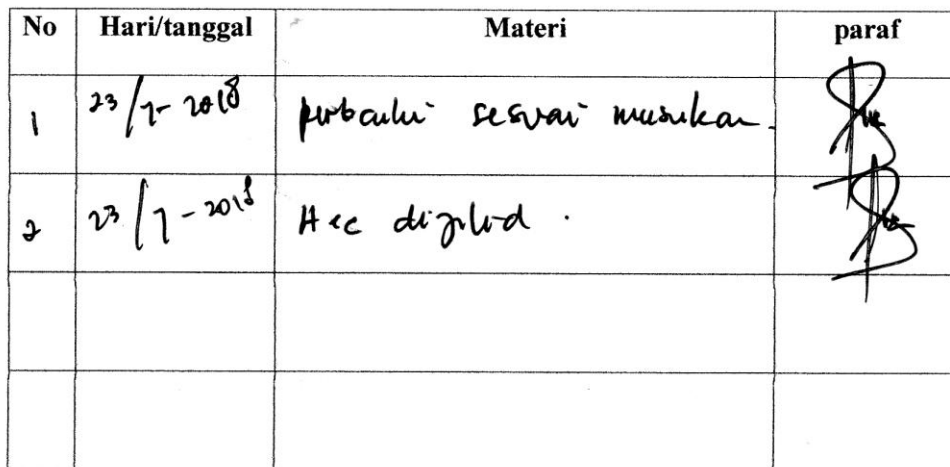 No Hari/tanggal Materi paraf
1 23/7-2018 perbaiki sesuai masukan.
2 23/7-2018 Acc dijilid.